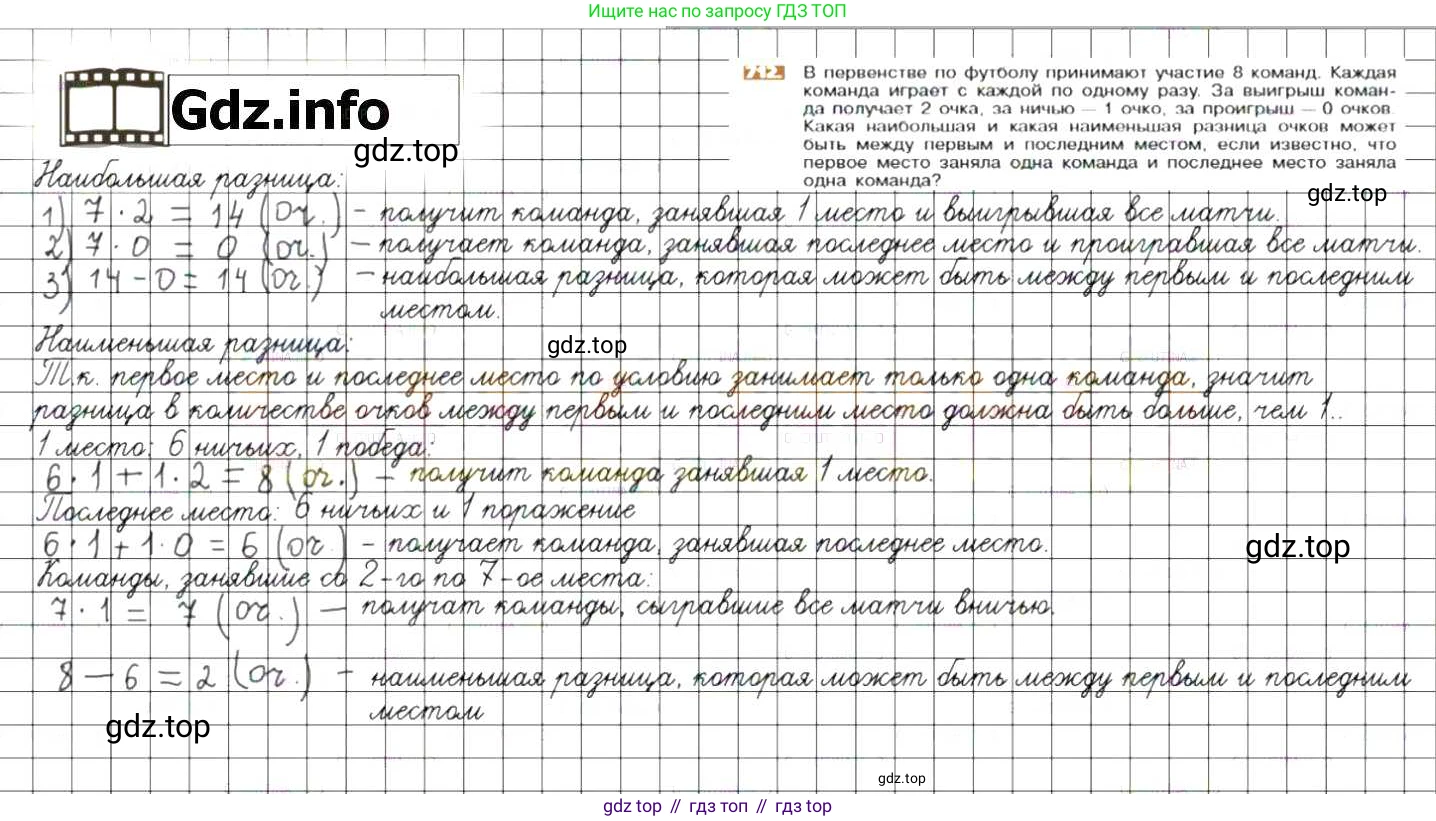 Ищите нас по запросу ГДЗ ТОП
Gdz.info
gdz.top
712. В первенстве по футболу принимают участие 8 команд. Каждая
команда играет с каждой по одному разу. За выигрыш коман-
да получает 2 очка, за ничью — 1 очко, за проигрыш — 0 очков.
Какая наибольшая и какая наименьшая разница очков может
быть между первым и последним местом, если известно, что
первое место заняла одна команда и последнее место заняла
одна команда?
gdz.top
Наибольшая разница:
1) 7 · 2 = 14 (оч.) – получит команда, занявшая 1 место и выигрывшая все матчи.
2) 7 · 0 = 0 (оч.) – получает команда, занявшая последнее место и проигравшая все матчи.
3) 14 - 0 = 14 (оч.) – наибольшая разница, которая может быть между первым и последним
местом.
Наименьшая разница:
gdz.top
Т.к. первое место и последнее место по условию занимает только одна команда, значит
разница в количестве очков между первым и последним место должна быть больше, чем 1..
1 место: 6 ничьих, 1 победа:
6 · 1 + 1 · 2 = 8 (оч.) – получит команда занявшая 1 место.
Последнее место: 6 ничьих и 1 поражение
6 · 1 + 1 · 0 = 6 (оч.) – получает команда, занявшая последнее место.
gdz.top
Команды, занявшие со 2-го по 7-ое места:
7 · 1 = 7 (оч.) — получат команды, сыгравшие все матчи вничью.
8 – 6 = 2 (оч.) – наименьшая разница, которая может быть между первым и последним
местом
gdz.top
gdz.top
gdz top // гдз топ // gdz.top